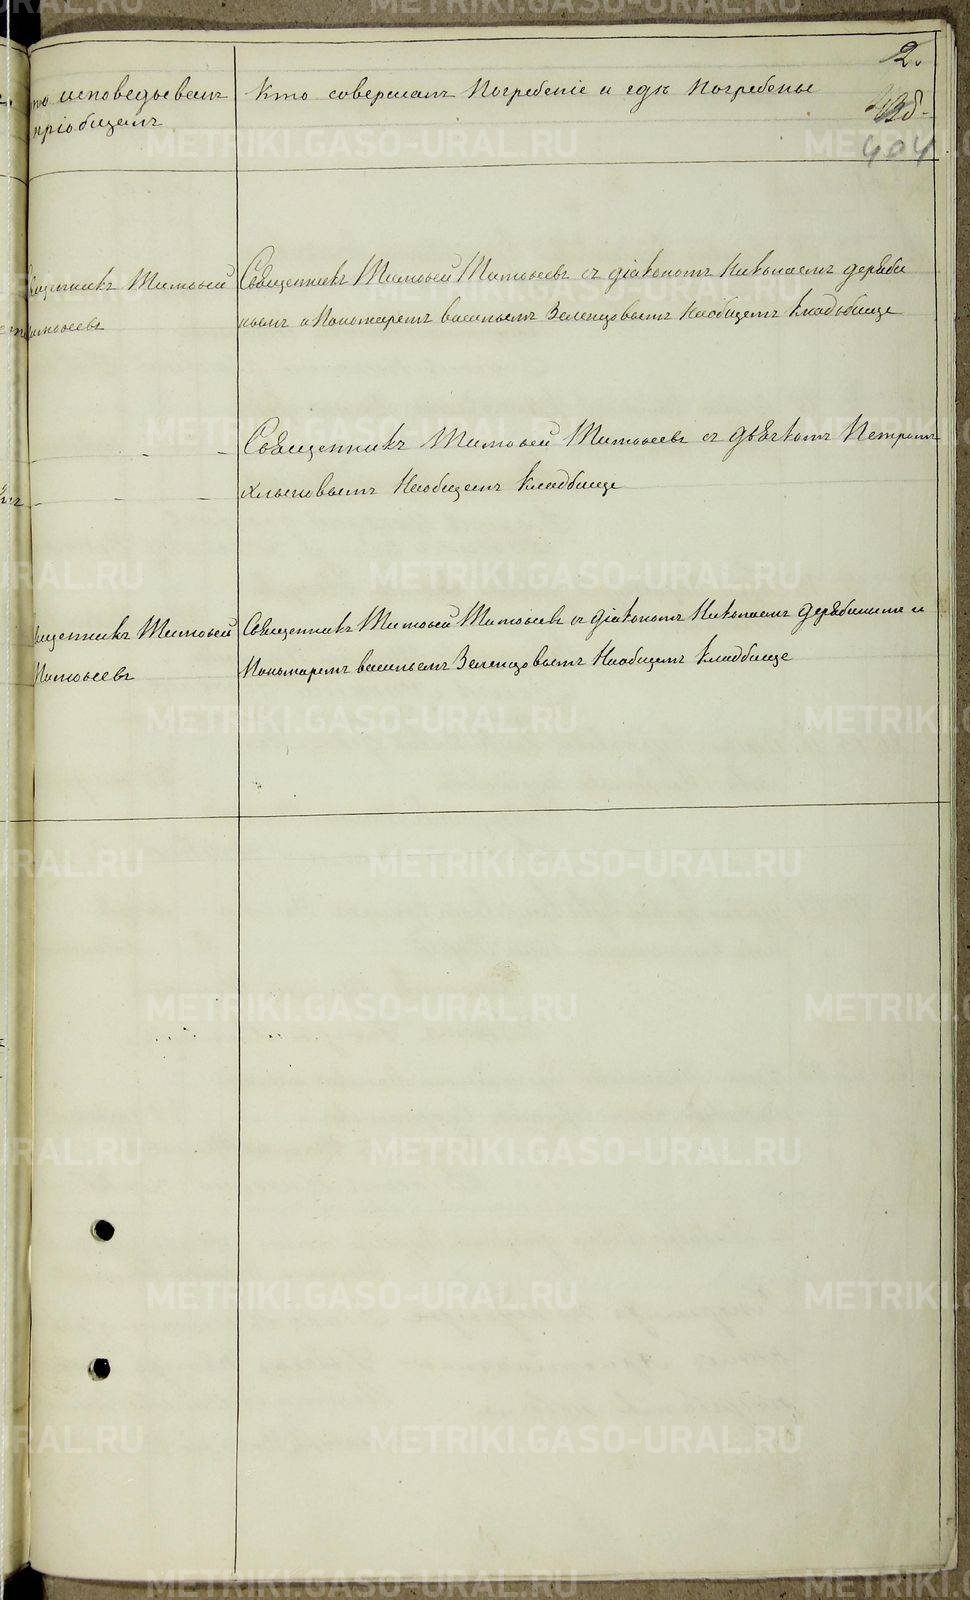 2.
то исповедывалъ
приобщалъ
Кто совершалъ Погребеніе и гдѣ Погребены
404
Священникъ Тимофей
Тимофеевъ
Священникъ Тимофей Тимофеевъ съ діакономъ Николаемъ деряби
нымъ и Пономаремъ васильемъ Зеленцовымъ Наобщемъ Кладбище
Священникъ Тимофей Тимофеевъ съ дьячкомъ Петромъ
Наобщемъ Кладбище
щенникъ Тимофей
Тимофеевъ
Священникъ Тимофей Тимофеевъ съ діакономъ Николаемъ Дерябинымъ и
Пономаремъ васильемъ Зеленцовымъ Наобщемъ Кладбище
METRIKI.GASO-URAL.RU